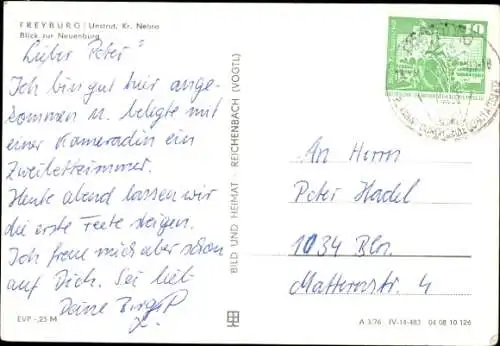 FREYBURG / Unstrut, Kr. Nebra
Blick zur Neuenburg
Lieber Peter"
Ich bin gut hier ange-
kommen u. belegte mit
einer Kameradin ein
Zweibettzimmer.
Heute abend lassen wir
die erste Feete steigen.
Ich freue mich aber schon
auf Dich. Sei lieb
Deine
EVP -,25 M
BILD UND HEIMAT · REICHENBACH (VOGTL)
10
An Herrn
Peter Hadel
1034 Bln.
Matternstr. 4
A 3/76 IV-14-483 04 08 10 126